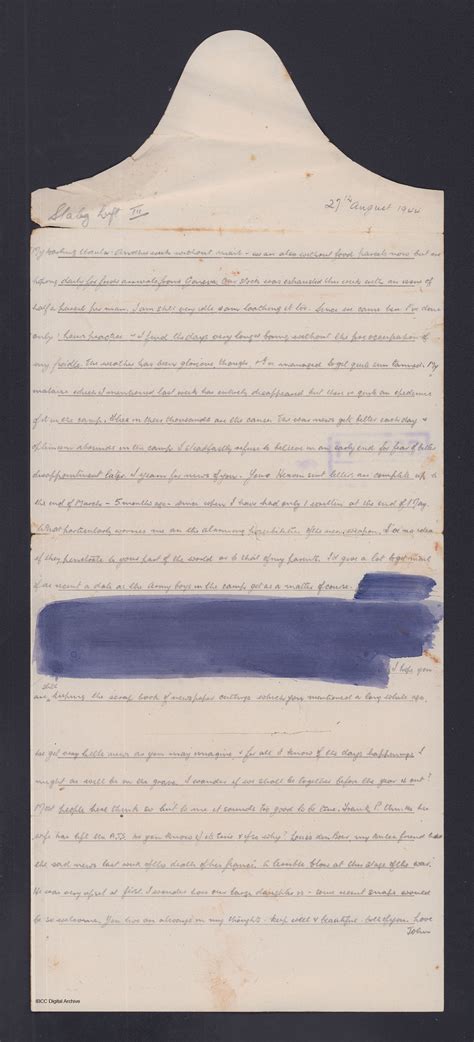 Stalag Luft III 27th August 1944
My Darling Ursula - Another week without mail - we are also without food parcels now but are
hoping daily for fresh arrivals from Geneva. Our stock was exhausted this week with an issue of
half a parcel per man. I am still very idle & am loathing it too. Since we came here I've done
only 1 hours practice - I find the days very long being without the pre occupation of
my fiddle. The weather has been glorious though & I've managed to get quite sun tanned. My
malaise which I mentioned last week has entirely disappeared but there is quite an epidemic
of it in the camp. Flies in their thousands are the cause. The war news gets better each day &
optimism abounds in the camp. I steadfastly refuse to believe in an early end for fear of bitter
disappointment later. I yearn for news of you. Your Heaven sent letters are complete up to
the end of March - 5 months ago - since when I have had only 1 written at the end of May.
What particularly worries me are the alarming possibilities of the new weapon. I've no idea
if they penetrate to your part of the world or to that of my parents. I'd give a lot to get mail
of as recent a date as the Army boys in the camp get as a matter of course.
I hope you
are still keeping the scrap book of newspaper cuttings which you mentioned a long while ago.
We get very little news as you may imagine & for all I know of the days happenings I
might as well be in the grave. I wonder if we shall be together before the year is out?
Most people here think so but to me it sounds too good to be true. Frank P. thinks his
wife has left the A.T.S. Do you know if it's true & if so why? my friend had
the sad news last week of the death of her fiancé. A terrible blow at this stage of the war.
He was very upset at first. I wonder how our large daughter is - some recent snaps would
be so welcome. You are always in my thoughts - keep well & beautiful. Love
John
IBCC Digital Archive